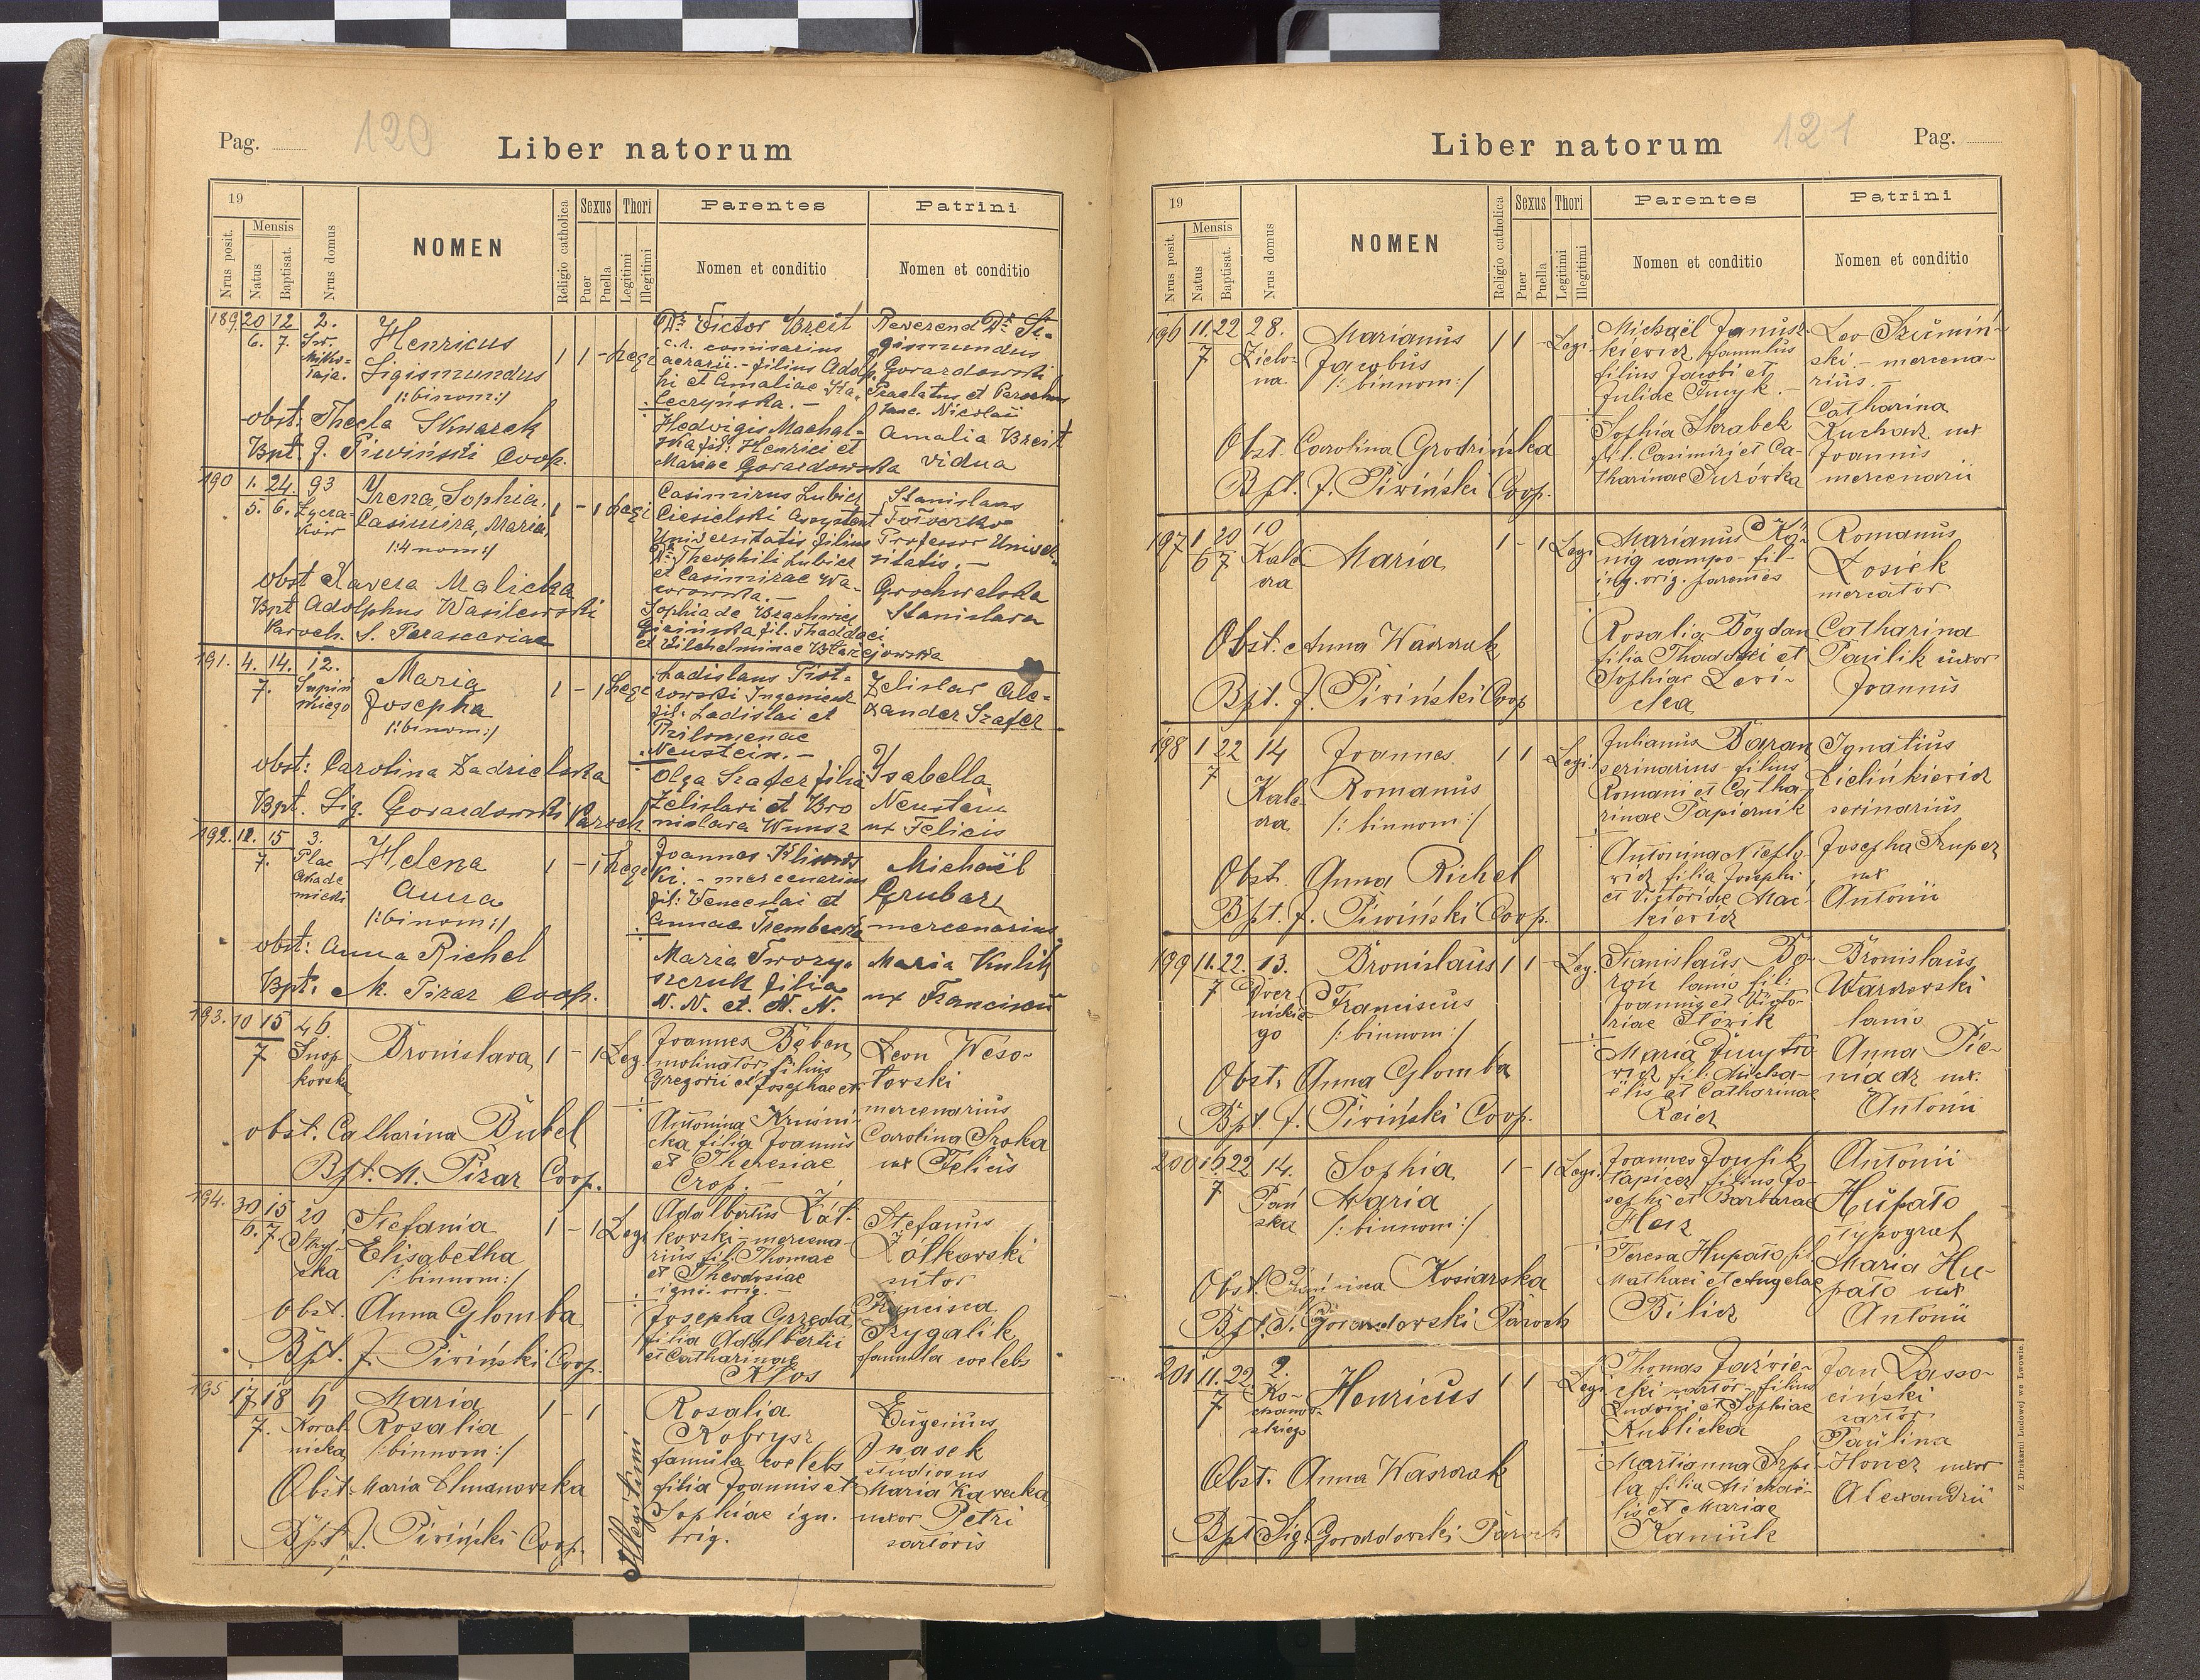 Pag.
120
Liber natorum
19
Mensis
Nrus posit.
Natus
Baptisat.
Nrus domus
NOMEN
Religio catholica
Sexus
Puer
Puella
Thori
Legitimi
Illegitimi
Parentes
Nomen et conditio
Patrini
Nomen et conditio
189. 20 12 2.
6. 7. Św. Miko-
łaja.
Henricus
Sigismundus
/:binom:/
1 1 - Legi
obst: Thecla Skwarek
Bpt. J. Piwiński Coop.
Dr Victor Breit
c.r. comisarius
aerarii.- filius Adol
fi et Amaliae
Hedvigis Machal-
ska fil: Henrici et
Mariae Gorazdowska
Reverend Dr Si-
gismundus
Gorazdowski
Praelatus et Parochus
Sanc. Nicolai
Amalia Breit
vidua
190 1. 24. 93
5. 6.
Irena, Sophia,
Casimira, Maria,
/:4 nom:/
1 - 1 Legi
obst Xavera Malicka
Bpt Adolphus Wasilewski
Paroch. S. Parasceviae
Casimirus Lubicz
Ciesielski Assystent
Universitatis filius
Dr Theophili Lubicz
et Casimirae Wa-
Sophia de
fil. Thaddaei
et Vilhelminae
Stanislaus
Professor Univer-
sitatis.-
Grochwalska
Stanislava
191. 4. 14. 12.
7. Supiń
skiego
Maria
Josepha
/:binom:/
1 - 1 Legi
obst: Carolina Zadzielska
Bpt. Sig. Gorazdowski Paroch
Ladislaus Pist-
rowski Ingenieur
fil: Ladislai et
Philomenae
Neustein.-
Olga Szafer filia
Zelislavi et Bro
nislava Wunsz
Zelislav Ale-
xander Szafer
Ysabella
Neustein
ux Felicis
192. 12. 15 3.
7. Plac
Akade
micki
Helena
Anna
/:binom:/
1 - 1 Legi
obst: Anna Richel
Bpt. M. Pizar Coop.
Joannes
ki. - mercenarius
fil: Venceslai et
Annae Trembecka
Maria Tworzy-
szczuk filia
N. N. et. N. N.
Michaël
Grubarz
mercenarius
Maria Kulik
ux Francisci
193. 10 15 46
7 Snop
kowska
Bronislava
1 - 1 Leg
obst. Catharina Bubel
Bpt. M. Pizar Coop.
Joannes Beben
molinator filius
Gregorii et Josephae
Antonina
cka filia Joannis
et Theresiae
Crop.-
Leon Weso-
łowski
mercenarius
Carolina Sroka
ux Felicis
194. 30 15 20
6. 7. Stryj-
ska
Stefania
Elisabetha
/:binnom:/
1 - 1 Legi
Obst. Anna Glomba
Bpt. J. Piwiński Coop.
Adalbertus Żół-
kowski - mercena-
rius fil. Thomae
et Theodosiae
igno. orig.-
Josepha Grzęda
filia Adalberti
et Catharinae
Kłos
Stefanus
Żółkowski
sutor
Francisca
Szygalik
famula coelebs
195 17 18 6
7. Koral-
nicka
Maria
Rosalia
/:binnom:/
1 - 1
Illegitimi
Obst. Maria Elmanowska
Bpt J. Piwiński Coop.
Rosalia
Kobrysz
famula coelebs
filia Joannis et
Sophiae ign.
orig.
Eugenius
Jnasek
studiosus
Maria Kawecka
uxor Petri
sartoris
Liber natorum
121
Pag.
19
Mensis
Nrus posit.
Natus
Baptisat.
Nrus domus
NOMEN
Religio catholica
Sexus
Puer
Puella
Thori
Legitimi
Illegitimi
Parentes
Nomen et conditio
Patrini
Nomen et conditio
196 11 22 28.
7 Zielo-
na.
Marianus
Jacobus
/:binnom:/
1 1 - Legi
Obst. Carolina Grodzińska
Bpt. J. Piwiński Coop.
Michaël Janusz-
kiewicz famulus
filius Jacobi et
Juliae
Sophia Skrabek
fil. Casimiri et Ca-
tharinae Surówka
Leo Szumiń-
ski - mercena-
rius.-
Catharina
Kucharz ux
Joannis
mercenarii
197 1 20 10
6 7 Kale
cza
Maria
1 - 1 Legi
Obst. Anna Waszczuk
Bpt. J. Piwiński Coop
Marianus Kö-
nig campo- fil-
ing. orig. parentes
Rosalia Bogdan
filia Thaddaei et
Sophiae Levi-
cka
Romanus
Łosiek
mercator
Catharina
Pawlik uxor
Joannis
198 1 22 14
7 Kale
cza
Joannes
Romanus
/:binnom:/
1 1 - Legi
Obst. Anna Richel
Bpt. J. Piwiński Coop.
Julianus Baran
serinarius - filius
Romani et Catha
rinae Papiernik
Antonina
wicz filia Josephi
et Victoriae Mac-
kiewicz
Ignatius
Zielińkiewicz
serinarius
Josepha Szuper
ux
Antonii
199 11. 22. 13.
7 Dwer
nickie
go
Bronislaus
Franciscus
/:binnom:/
1 1 - Leg
Obst. Anna Glomba
Bpt. J. Piwiński Coop.
Stanislaus Bo-
roń lanio fil:
Joannis et Victo-
riae Słowik
Maria Dmytro
wicz fil. Micha-
ëlis et Catharinae
Reicz
Bronislaus
Warszewski
lanio
Anna Pie-
niadz ux.
Antonii
200 16 22 14.
7 Pań
ska
Sophia
Maria
/:binnom:/
1 - 1 Legi
Obst. Kosiarska
Bpt. S. Gorazdowski Paroch
Joannes Jousik
tapicer filius Jo-
sephi et Barbarae
Herz
Teresa Hupało fil
Mathaei et Angelae
Bilicz
Antonii
Hupało
typograf
Maria Hu-
pało ux
Antonii
201 11. 22 2.
7 Ko-
chanow-
skiego
Henricus
1 1 - Legi
Obst. Anna Waszczuk
Bpt Sig. Gorazdowski Paroch
Thomas Jaźwie-
cki sartor - filius
Ludovici et Sophiae
Kublicka
Marianna Szpi-
la filia Michaë-
lis et Mariae
Kaniuk
Jan Lasso-
ciński
sartor
Paulina
Honcz uxor
Alexandrii
Z Drukarni Ludowej we Lwowie.